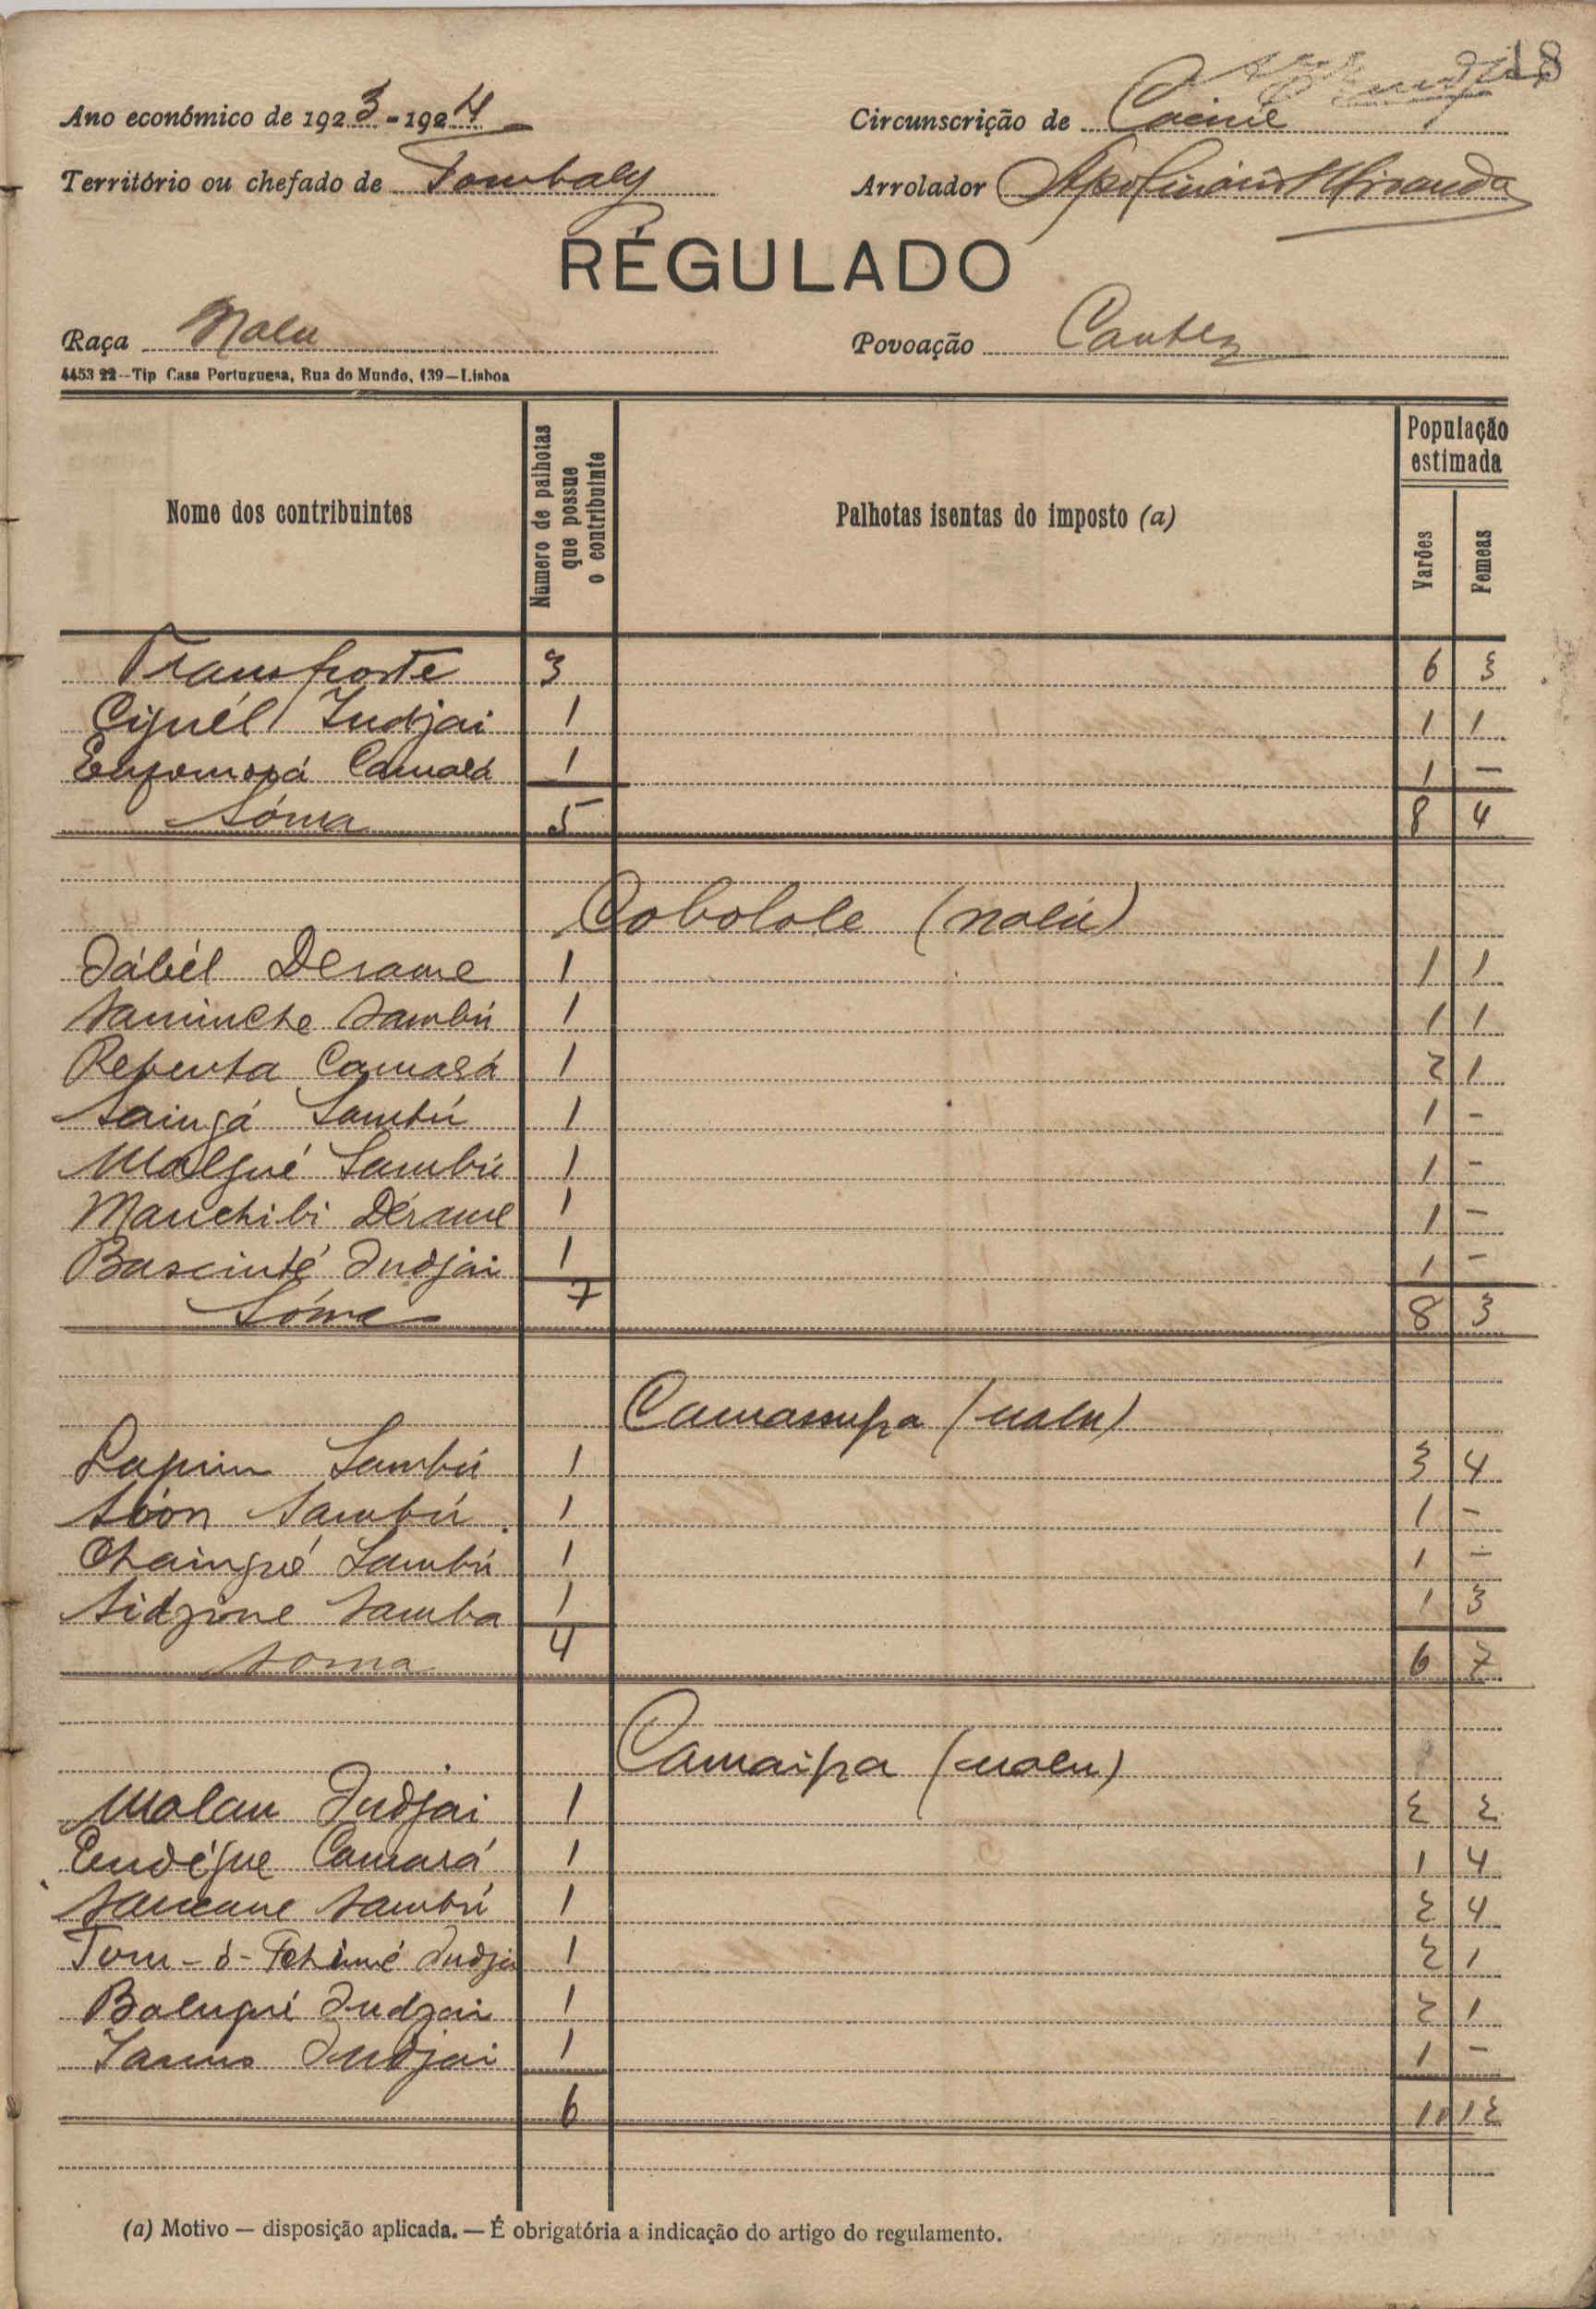 18
Ano económico de 1923-1924 Circunscrição de Cacine
Território ou chefado de Tombaly Arrolador Apolinário Miranda
RÉGULADO
Raça Nalu Povoação Cantez
4453 22--Tip Casa Portuguesa, Rua do Mundo, 139—Lisboa
Nome dos contribuintes Número de palhotas que possue o contribuinte Palhotas isentas do imposto (a) População estimada Varões Femeas
Transporte 3 6 3
Ciquél Indjai 1 1 1
Camará 1 1 -
Sóma 5 8 4
Cobolole (nalú)
Dábél Derame 1 1 1
Saminche Sambú 1 1 1
Rebenta Camará 1 2 1
Saingá Sambú 1 1 -
Malgué Sambú 1 1 -
Manchibi Dérame 1 1 -
Basciuté Indjai 1 1 -
Sóma 7 8 3
Camassupa (nalu)
Lapim Sambú 1 3 4
Sambú 1 1 -
Chaingué Sambú 1 1 -
Sidzone Samba 1 1 3
Soma 4 6 7
Camaipa (nalu)
Malan Indjai 1 2 2
Endégue Camará 1 1 4
Sancane Sambú 1 2 4
Tom-ó- Indjai 1 2 1
Balugué Indzai 1 2 1
Indjai 1 1 -
6 10 12
(a) Motivo — disposição aplicada. — É obrigatória a indicação do artigo do regulamento.